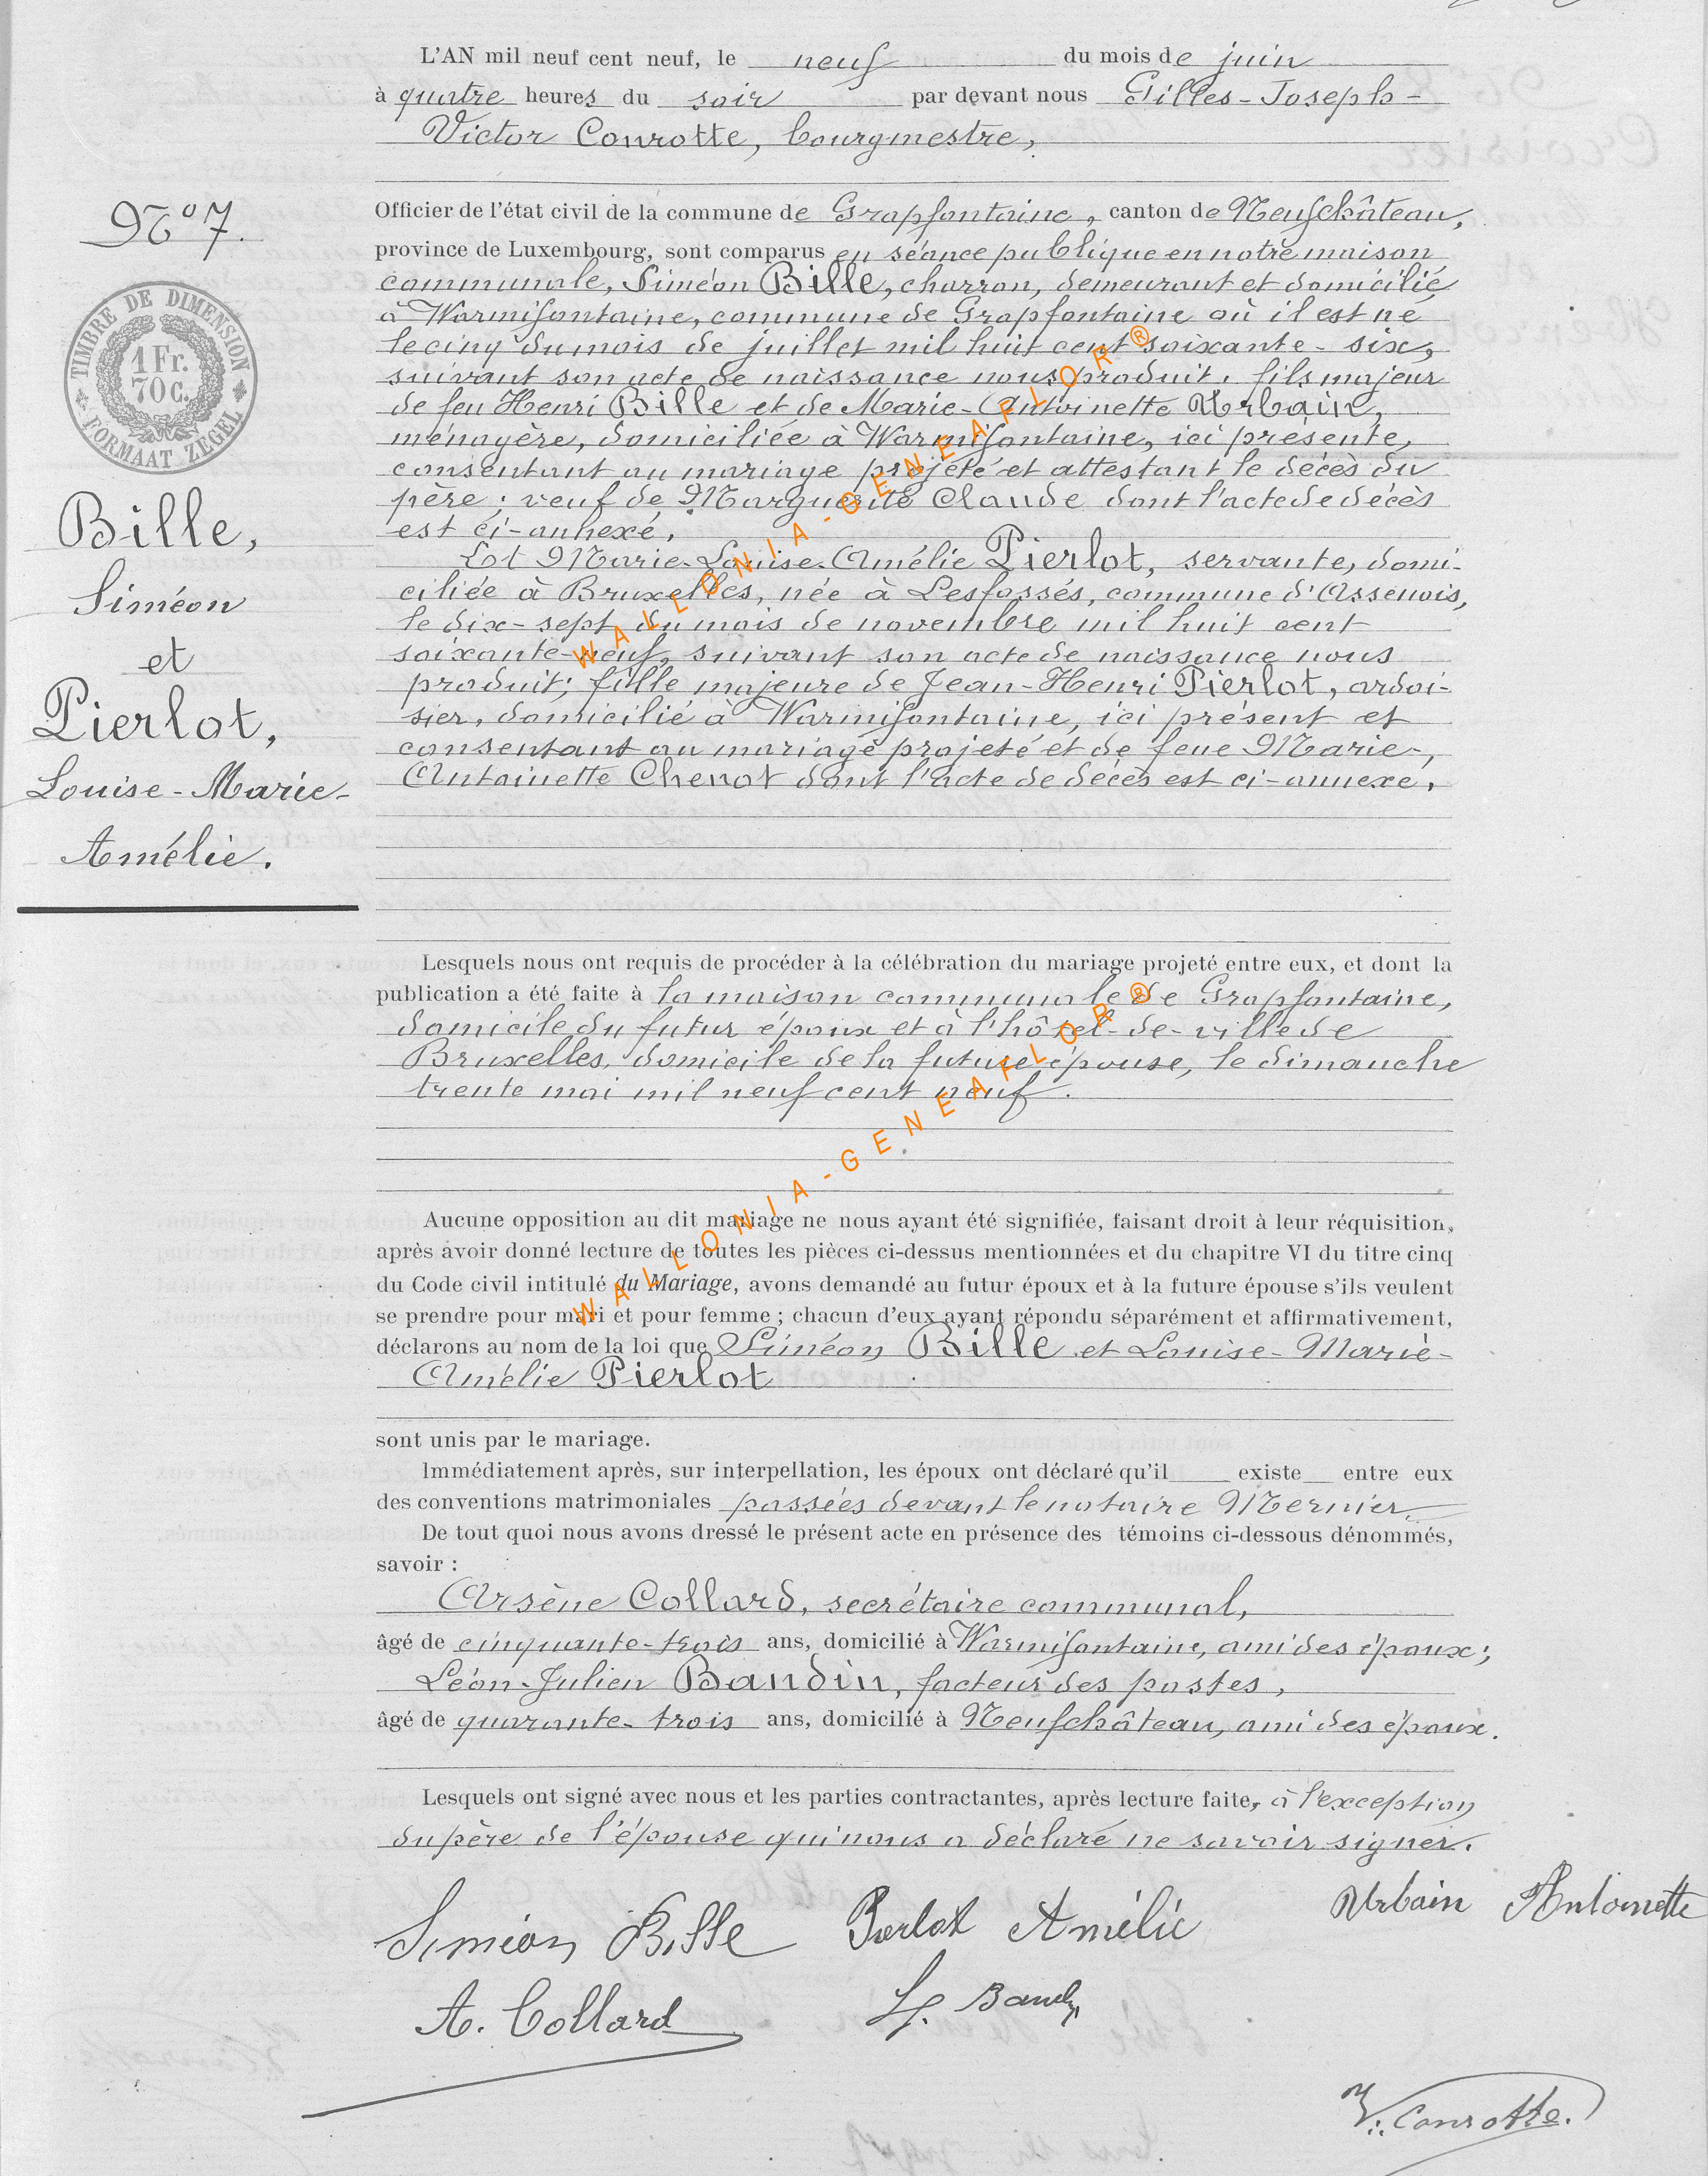 L'AN mil neuf cent neuf, le neuf du mois de juin
à quatre heures du soir par devant nous Gilles-Joseph-
Victor Conrotte, bourgmestre,
Officier de l'état civil de la commune de Grapfontaine, canton de Neufchâteau,
province de Luxembourg, sont comparus en séance publique en notre maison
communale, Siméon Bille, charron, demeurant et domicilié
à Warmifontaine, commune de Grapfontaine où il est né
le cinq du mois de juillet mil huit cent soixante-six,
suivant son acte de naissance nous produit, fils majeur
de feu Henri Bille et de Marie-Antoinette Urbain,
ménagère, domiciliée à Warmifontaine, ici présente,
consentant au mariage projeté et attestant le décès du
père ; veuf de Marguerite Claude dont l'acte de décès
est ci-annexé,
Et Marie-Louise-Amélie Pierlot, servante, domi-
ciliée à Bruxelles, née à Lesfossés, commune d'Assenois,
le dix-sept du mois de novembre mil huit cent
soixante-neuf, suivant son acte de naissance nous
produit; fille majeure de Jean-Henri Pierlot, ardoi-
sier, domicilié à Warmifontaine, ici présent et
consentant au mariage projeté et de feue Marie-
Antoinette Chenot dont l'acte de décès est ci-annexé.
N° 7.
TIMBRE DE DIMENSION
1 Fr.
70 C.
FORMAAT ZEGEL
Bille,
Siméon
et
Pierlot,
Louise-Marie-
Amélie.
Lesquels nous ont requis de procéder à la célébration du mariage projeté entre eux, et dont la
publication a été faite à la maison communale de Grapfontaine,
domicile du futur époux et à l'hôtel-de-ville de
Bruxelles, domicile de la future épouse, le dimanche
trente mai mil neuf cent neuf.
Aucune opposition au dit mariage ne nous ayant été signifiée, faisant droit à leur réquisition,
après avoir donné lecture de toutes les pièces ci-dessus mentionnées et du chapitre VI du titre cinq
du Code civil intitulé du Mariage, avons demandé au futur époux et à la future épouse s'ils veulent
se prendre pour mari et pour femme ; chacun d'eux ayant répondu séparément et affirmativement,
déclarons au nom de la loi que Siméon Bille et Louise-Marie-
Amélie Pierlot
sont unis par le mariage.
Immédiatement après, sur interpellation, les époux ont déclaré qu'il existe entre eux
des conventions matrimoniales passées devant le notaire Mernier.
De tout quoi nous avons dressé le présent acte en présence des témoins ci-dessous dénommés,
savoir :
Arsène Collard, secrétaire communal,
âgé de cinquante-trois ans, domicilié à Warmifontaine, ami des époux;
Léon-Julien Baudin, facteur des postes,
âgé de quarante-trois ans, domicilié à Neufchâteau, ami des époux.
Lesquels ont signé avec nous et les parties contractantes, après lecture faite, à l'exception
du père de l'épouse qui nous a déclaré ne savoir signer.
Siméon Bille Pierlot Amélie Urbain Antoinette
A. Collard Baudin
V. Conrotte.
WALLONIA-GENEAFLOR®
WALLONIA-GENEAFLOR®